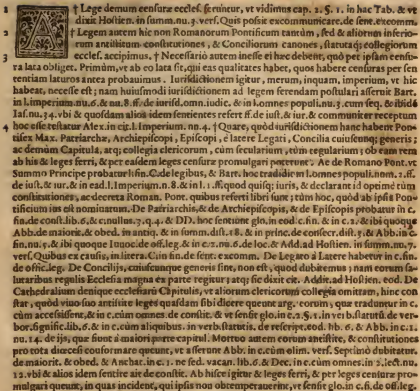 † Lege demum censuræ eccles. feruntur, vt vidimus cap. 2. §. 1. in hac Tab. & vt
dixit Hostien. in summ. nu. 3. vers. Quis possit excommunicare. de sent. excomm.
2 † Legem autem hic non Romanorum Pontificum tantùm, sed & aliorum inferio-
rum antistitum constitutiones, & Conciliorum canones, statutaq; collegiorum
3 eccles. accipimus, † Necessariò autem inesse ei hæc debent, quò per ipsam censu-
ra lata obliget. Primùm, vt ab eo lata sit, qui eas qualitates habet, quos habere censuras per sen
tentiam laturos antea probauimus. Iurisdictionem igitur, merum, inquam, imperium, vt hic
habeat, necesse est; nam huiusmodi iurisdictionem ad legem ferendam postulari asserit Bart.
in l. imperium. nu. 6. & nu. 8. ff. de iurisd. omn. iudic. & in l. omnes populi. nu. 3. cum seq. & ibid.
Ias. nu. 34. vbi & quosdam alios idem sentientes refert ff. de iust. & iur. & communiter receptum
4 hoc esse testatur Alex. in cit. l. imperium. nu. 4. † Quare, quòd iurisdictionem hanc habent Pon-
tifex Max. Patriarchæ, Archiepiscopi, Episcopi, è latere Legati, Concilia cuiuscunq; generis;
ac demùm Capitula, atq; collegia clericorum, cùm secularium, tùm regularium; ob eam rem
ab his & leges ferri, & per easdem leges censuræ promulgari poterunt. Ac de Romano Pont. vt
Summo Principe probatur l. fin. C. de legibus, & Bart. hoc tradit in l. omnes populi. nom. 2. ff.
de iust. & iur. & in ead. l. Imperium. n. 8. & in l. 1. ff. quod quisq; iuris, & declarant id optimè tùm
constitutiones, ac decreta Roman. Pont. quibus referti libri sunt; tùm hoc, quòd ab ipsis Pon-
tificium ius est nominatum. De Patriarchis, & de Archiepiscopis, & de Episcopis probatur in c.
fin. de const. lib. 6. & c. nullus. 7. q. 4. & DD. hoc sentiunt
Abb. de maiorit. & obed. in antiq. & in summ. dist. 18. & in princ. de consecr. dist. 5. & Abb. in c.
fin. nu. 5. & ibi quoque Innoc. de off. leg. & in c. 2. nu. 6. de loc. & Add. ad Hostien. in summ. nu. 7.
vers. Quibus ex causis, in litera. C. in fin. de sent. excomm. De Legato à Latere habetur in c. fin.
de offic. leg. De Concilijs, cuiuscunque generis sint, non est, quod dubitemus; nam eorum sa-
lutaribus regulis Ecclesia magna ex parte regitur; atq; sic dixit etc. Addit. ad Hostien. eod. De
Cathedralium denique ecclesiarũ Capitulis, vt aliorum clericorum collegia omittam, hinc con
stat, quòd viuo suo antistite leges quasdam sibi dicere queunt arg. eorum, quæ traduntur in c.
cùm accessissent, & in c. cùm omnes. de constit. & vt sentit glo. in c. 2. §. 1. in verb. statuta. de ver-
bor. signific. lib. 6. & in c. cùm aliquibus. in verb. statutis. de rescript. eod. lib. 6. & Abb. in c. 1.
nu. 14. de ijs, quæ fiunt à maiori parte capitul. Mortuo autem eorum antistite, & constitutiones
pro tota diœcesi conformare queunt, vt asserunt Abb. in c. cùm olim. vers. Seprimò dubitatur.
de maiorit. & obed. & Anchar. in c. 1. ne sed. vacan. lib. 6. & Dec. in c. cùm omnes. in 2. lect. nu.
12. vbi & alios idem sentire ait de constit. Ab hisce igitur & leges ferri, & per leges censuræ pro-
mulgari queunt, in quas incident, qui ipsis non obtemperauerint, vt sensit glo. in c. fi. de offic.